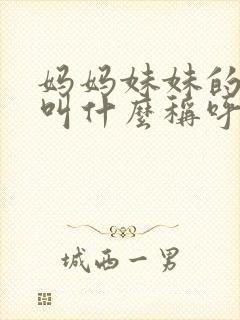 妈妈妹妹的
叫什麼稱呼
城西一男